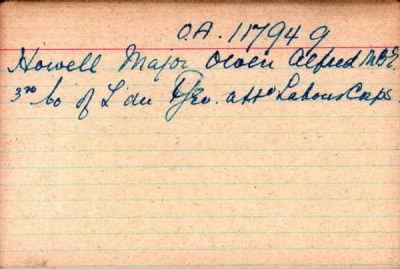 O.A. 117949
Howell Major Owen Alfred M.B.E.
3rd bo of L'dn Regt. attd Labour Corps